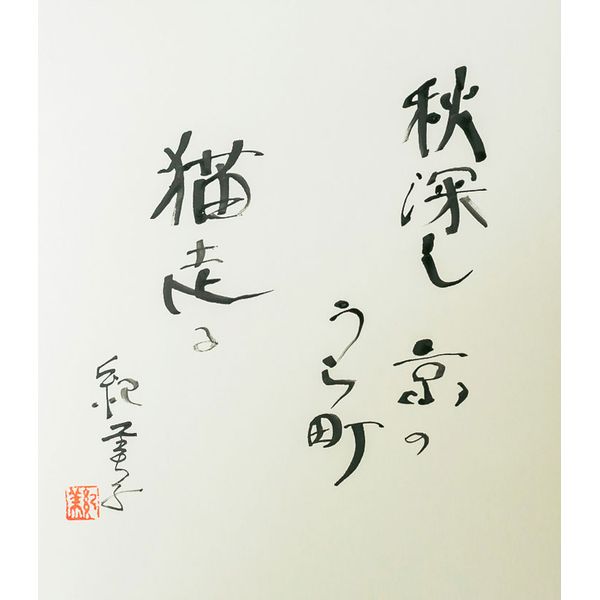 秋深し 京の
うら町
猫走る
紀美子
紀美